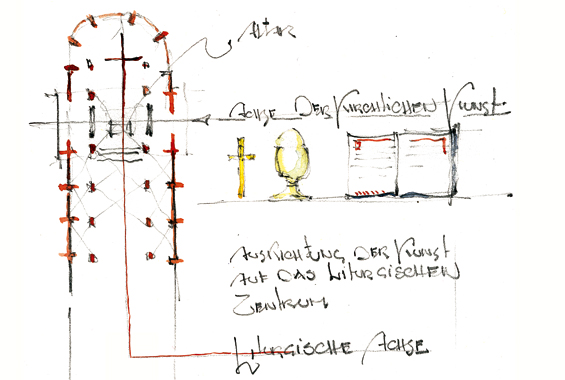 Altar
Achse der kirchlichen Kunst
Ausrichtung der Kunst
auf das liturgischen
Zentrum
Liturgische Achse